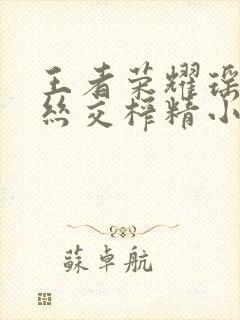 王者荣耀瑶
丝交榨精小
蘇卓航